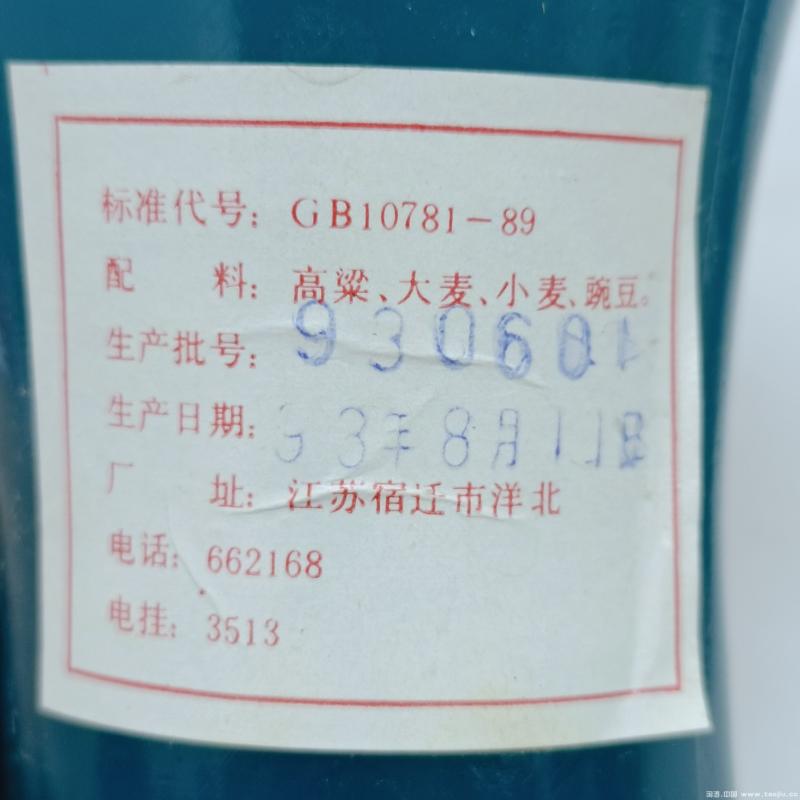 标准代号：GB10781－89
配　　料：高粱、大麦、小麦、豌豆。
生产批号：930601
生产日期：93年8月11日
厂　　址：江苏宿迁市洋北
电话：662168
电挂：3513